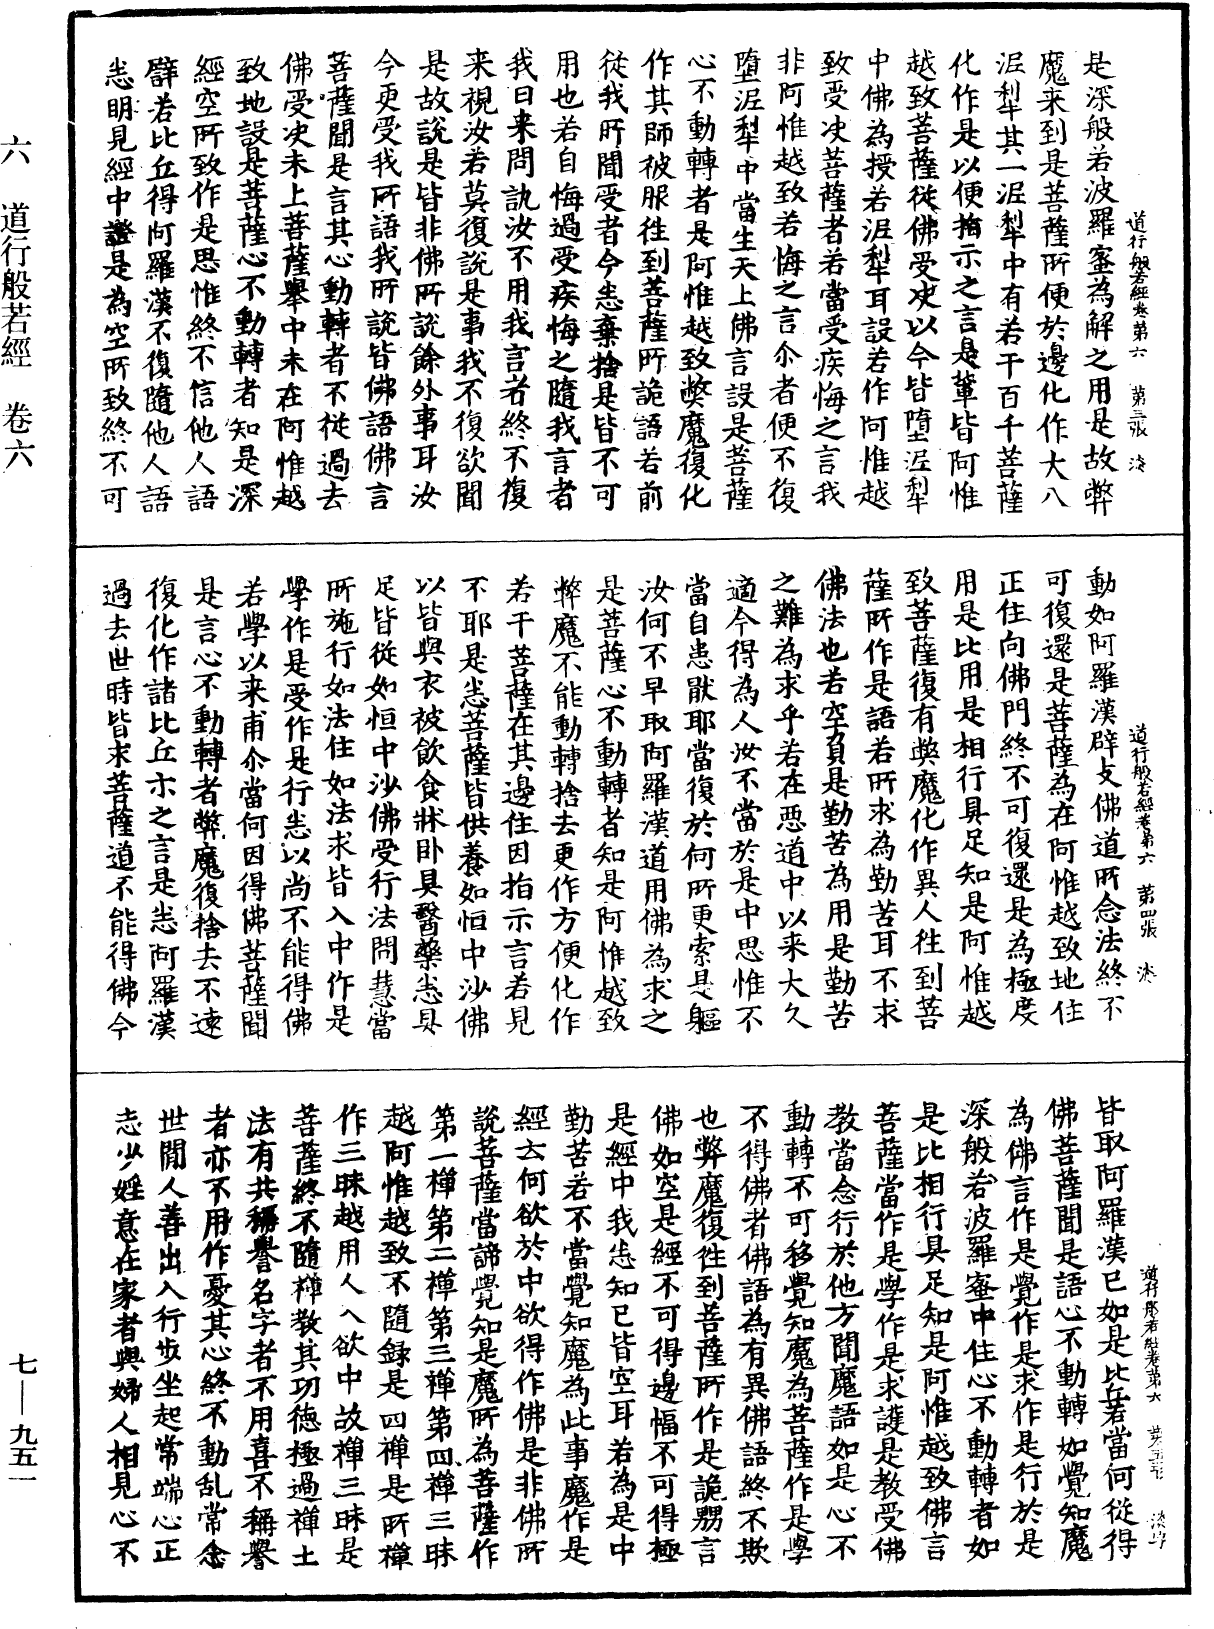 六 道行般若經 卷六
道行般若經卷第六 第三張 淡
是深般若波羅蜜為解之用是故弊
魔来到是菩薩所便於邊化作大八
泥犁其一泥犁中有若干百千菩薩
化作是以便指示之言是輩皆阿惟
越致菩薩從佛受决以今皆墮泥犁
中佛為授若泥犁耳設若作阿惟越
致受决菩薩者若當受疾悔之言我
非阿惟越致若悔之言尒者便不復
墮泥犁中當生天上佛言設是菩薩
心不動轉者是阿惟越致弊魔復化
作其師被服徃到菩薩所詭語若前
從我所聞受者今悉棄捨是皆不可
用也若自悔過受疾悔之隨我言者
我日来問訊汝不用我言者終不復
来視汝若莫復說是事我不復欲聞
是故說是皆非佛所說餘外事耳汝
今更受我所語我所說皆佛語佛言
菩薩聞是言其心動轉者不從過去
佛受决未上菩薩舉中未在阿惟越
致地設是菩薩心不動轉者知是深
經空所致作是思惟終不信他人語
譬若比丘得阿羅漢不復隨他人語
悉眀見經中證是為空所致終不可
道行般若經卷第六 第四張 淡
動如阿羅漢辟支佛道所念法終不
可復還是菩薩為在阿惟越致地住
正住向佛門終不可復還是為極度
用是比用是相行具足知是阿惟越
致菩薩復有弊魔化作異人徃到菩
薩所作是語若所求為勤苦耳不求
佛法也若空負是勤苦為用是勤苦
之難為求乎若在惡道中以来大久
適今得為人汝不當於是中思惟不
當自患猒耶當復於何所更索是軀
汝何不早取阿羅漢道用佛為求之
是菩薩心不動轉者知是阿惟越致
弊魔不能動轉捨去更作方便化作
若干菩薩在其邊住因指示言若見
不耶是悉菩薩皆供養如恒中沙佛
以皆與衣被飲食牀卧具醫藥悉具
足皆從如恒中沙佛受行法問慧當
所施行如法住如法求皆入中作是
學作是受作是行悉以尚不能得佛
若學以来甫尒當何因得佛菩薩聞
是言心不動轉者弊魔復捨去不遠
復化作諸比丘示之言是悉阿羅漢
過去世時皆求菩薩道不能得佛今
道行般若經卷第六 第五張 淡字
皆取阿羅漢已如是比丘若當何從得
佛菩薩聞是語心不動轉如覺知魔
為佛言作是覺作是求作是行於是
深般若波羅蜜中住心不動轉者如
是比相行具足知是阿惟越致佛言
菩薩當作是學作是求護是教受佛
教當念行於他方聞魔語如是心不
動轉不可移覺知魔為菩薩作是學
不得佛者佛語為有異佛語終不欺
也弊魔復徃到菩薩所作是詭嬈言
佛如空是經不可得邊幅不可得極
是經中我悉知已皆空耳若為是中
勤苦若不當覺知魔為此事魔作是
經云何欲於中欲得作佛是非佛所
說菩薩當諦覺知是魔所為菩薩作
第一禪第二禪第三禪第四禪三昧
越阿惟越致不隨録是四禪是所禪
作三昧越用人入欲中故禪三昧是
菩薩終不隨禪教其功德極過禪士
法有共稱譽名字者不用喜不稱譽
者亦不用作憂其心終不動乱常念
世閒人善出入行步坐起常端心正
志少婬意在家者與婦人相見心不
七—九五一